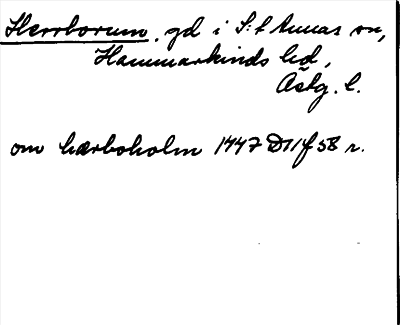 Herrborum. gd i S:t Annas sn,
Hammarkinds hd,
Östg. l.
om hærboholm 1447 D11 f 58 r.